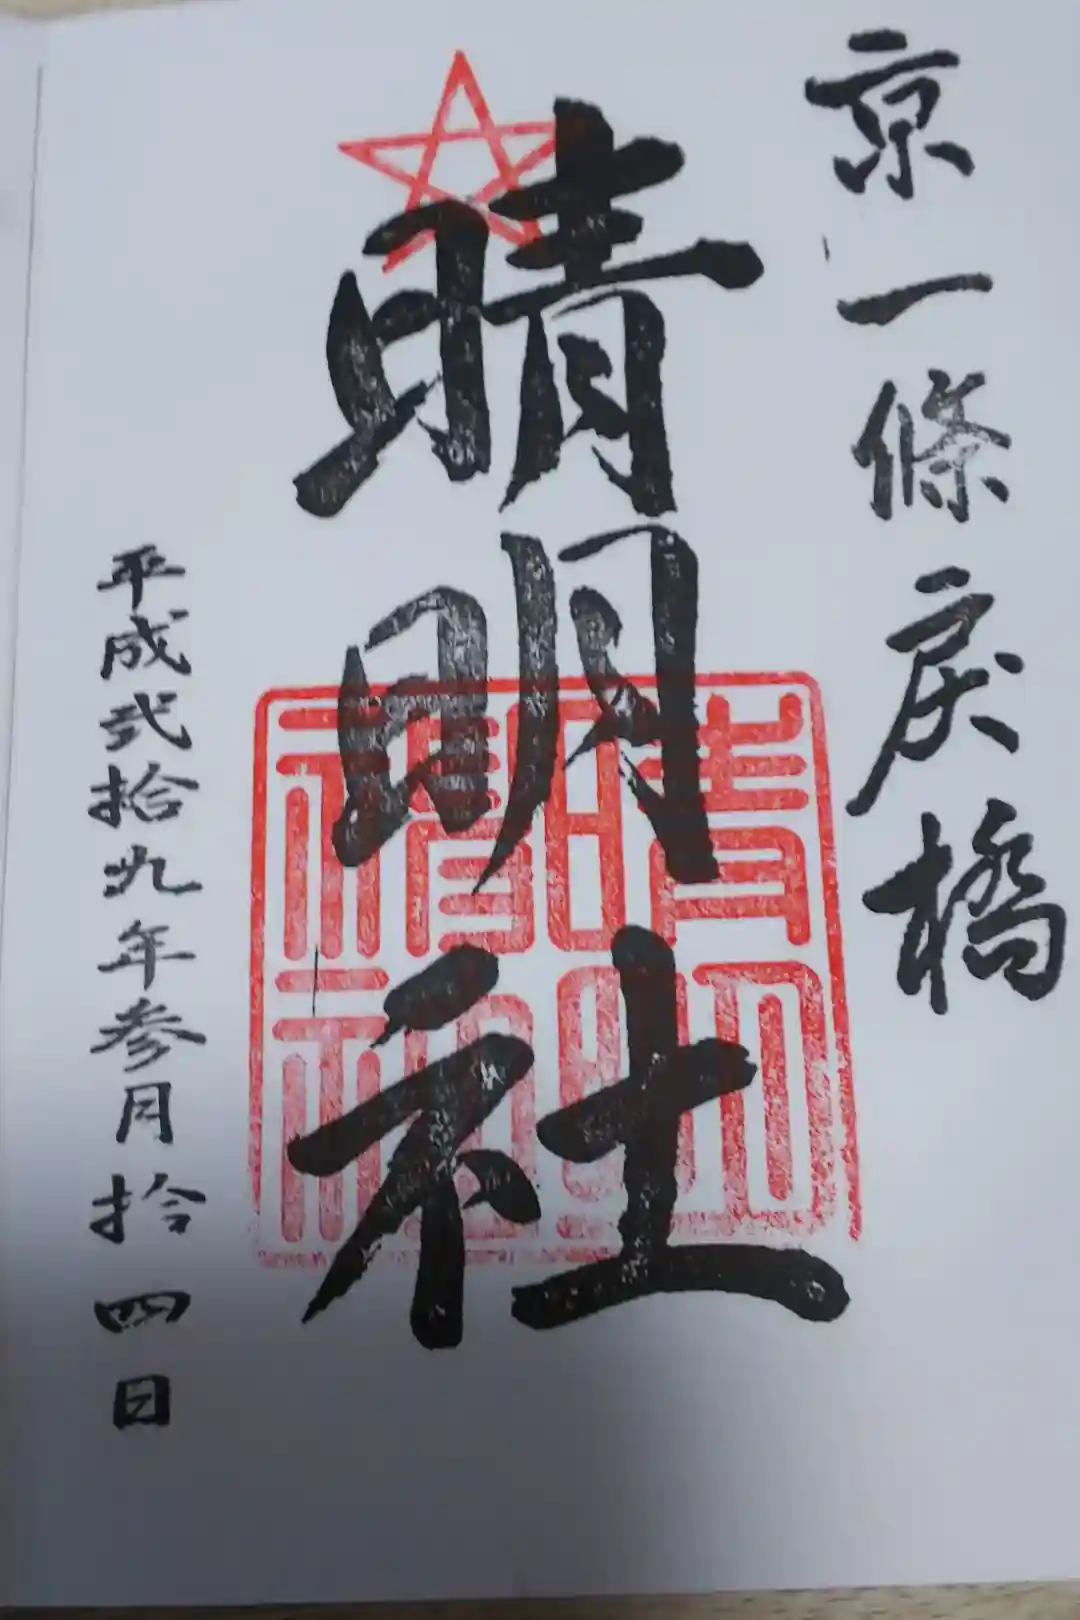 京一條戻橋
晴明社
平成弐拾九年参月拾四日